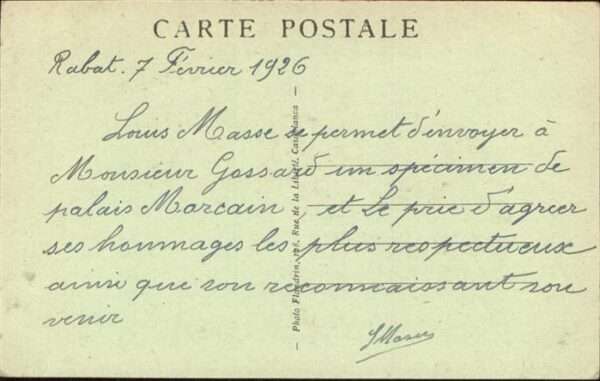 CARTE POSTALE
Rabat. 7 Février 1926
Louis Masse se permet d'envoyer à
Monsieur Gossard un spécimen de
palais Marcain et le prie d'agréer
ses hommages les plus respectueux
ainsi que son reconnaissant sou
venir
LMasse
Photo Flandrin, Rue de la Liberté, Casablanca